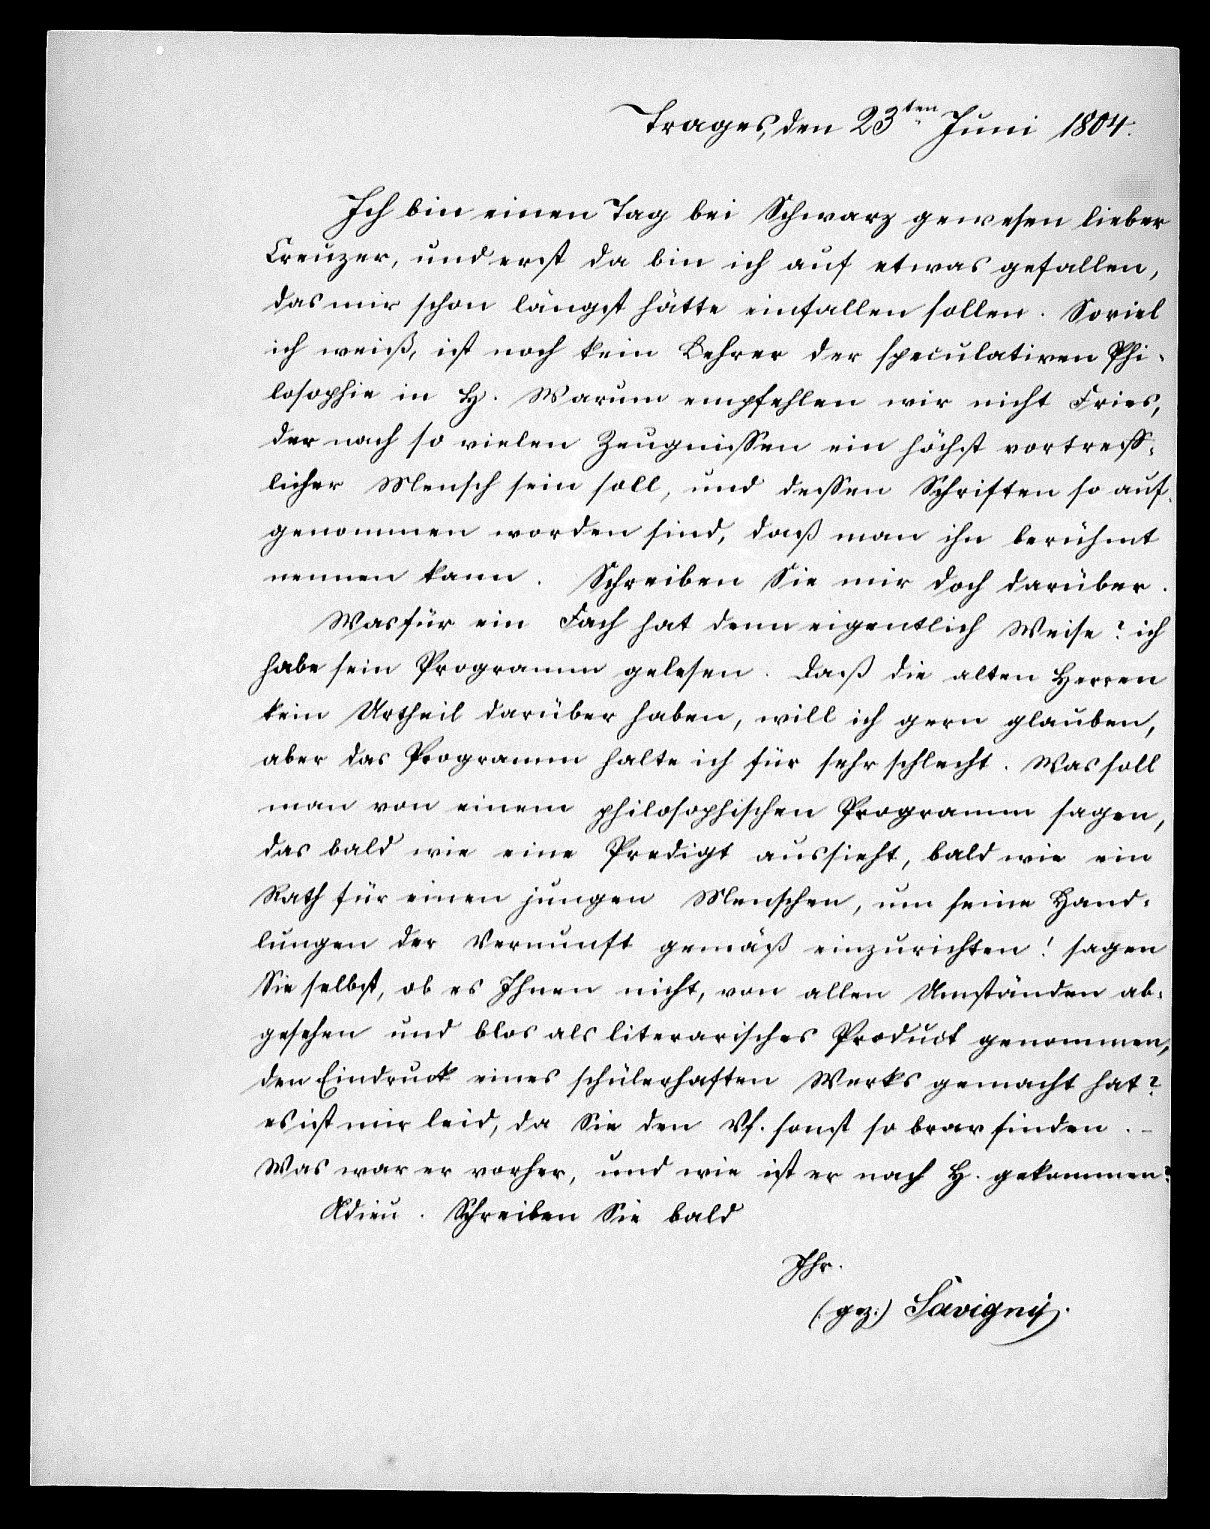 Trages, den 23ten Juni 1804.
Ich bin einen Tag bei Schwarz gewesen lieber
Creuzer, und erst da bin ich auf etwas gefallen,
das mir schon längst hätte einfallen sollen. Soviel
ich weiß, ist noch kein Lehrer der speculativen Phi-
losophie in H. Warum empfehlen wir nicht Fries,
der nach so vielen Zeugnissen ein höchst vortreff-
licher Mensch sein soll, und dessen Schriften so auf-
genommen worden sind, daß man ihn berühmt
nennen kann. Schreiben Sie mir doch darüber.
Was für ein Fach hat denn eigentlich Weise? ich
habe sein Programm gelesen. Daß die alten Herren
kein Urtheil darüber haben, will ich gern glauben,
aber das Programm halte ich für sehr schlecht. Was soll
man von einem philosophischen Programm sagen,
das bald wie eine Predigt aussieht, bald wie ein
Rath für einen jungen Menschen, um seine Hand-
lungen der Vernunft gemäß einzurichten! sagen
Sie selbst, ob es Ihnen nicht, von allen Umständen ab-
gesehen und blos als literarisches Product genommen,
den Eindruck eines schülerhaften Werks gemacht hat?
es ist mir leid, da Sie den Vf. sonst so brav finden. –
Was war er vorher, und wie ist er nach H. gekommen?
Adieu. Schreiben Sie bald
Ihr.
(gez.) Savigny.